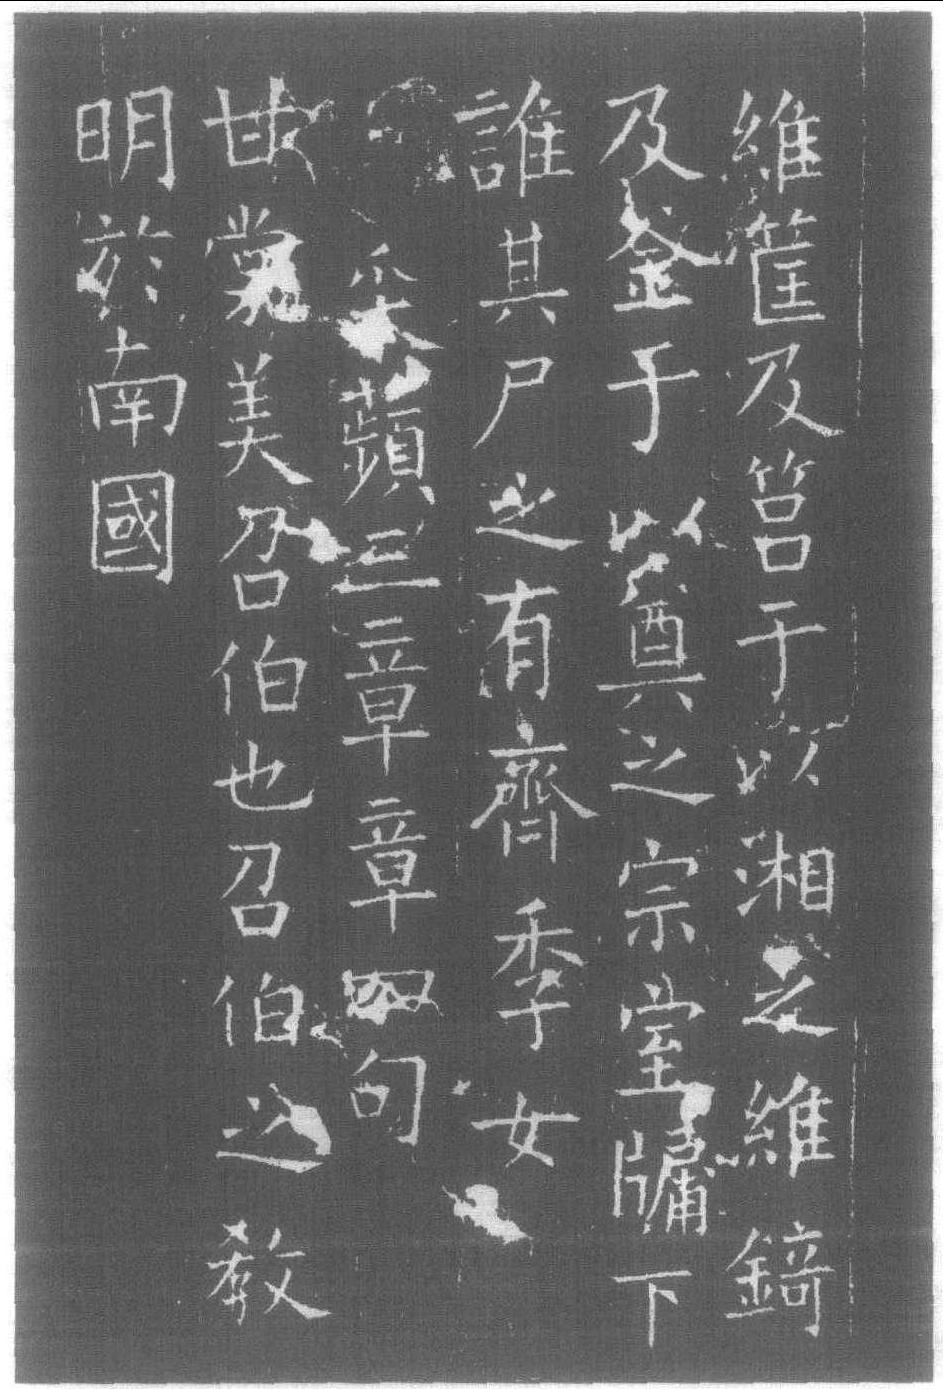 維筐及筥于以湘之維錡
及釜于以奠之宗室牖下
誰其尸之有齊季女
采蘋三章章四句
甘棠美召伯也召伯之教
明於南國